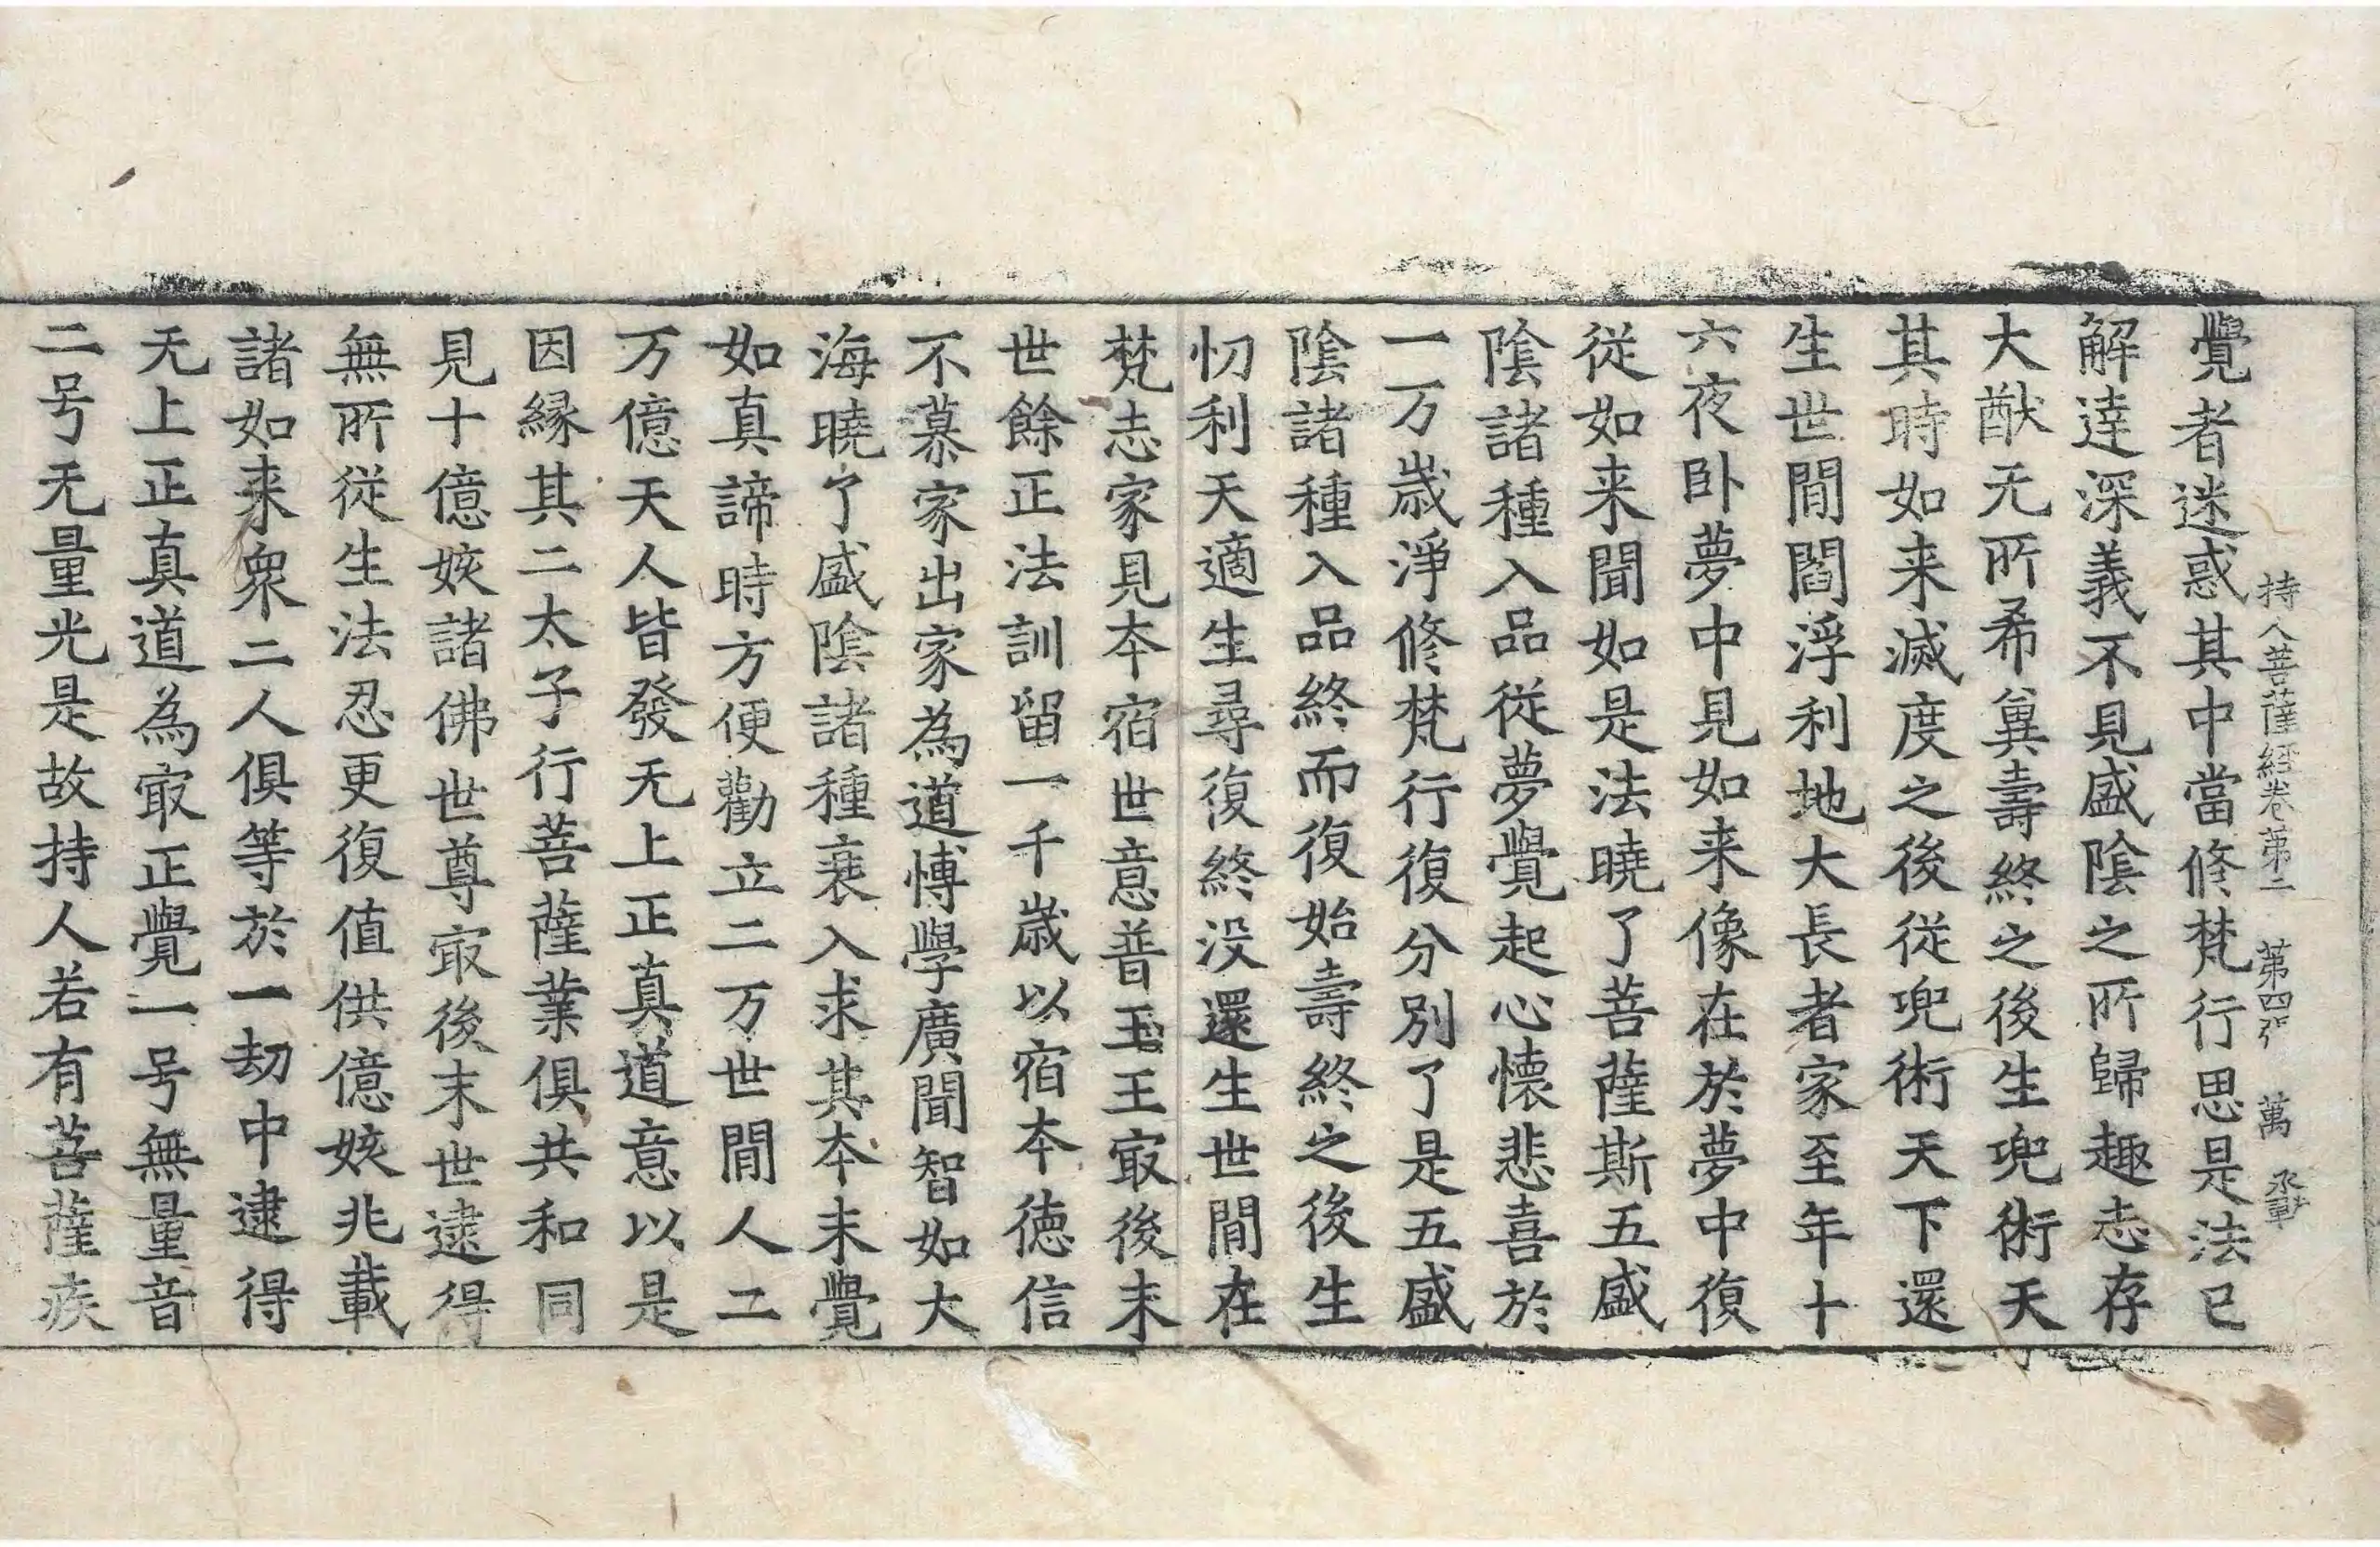 持人菩薩經卷第二 第四張 萬
覺者迷惑其中當修梵行思是法已
解達深義不見盛陰之所歸趣志存
大猷无所希兾壽終之後生兜術天
其時如来滅度之後從兜術天下還
生世閒閻浮利地大長者家至年十
六夜卧夢中見如来像在於夢中復
從如来聞如是法曉了菩薩斯五盛
陰諸種入品從夢覺起心懷悲喜於
一万歲淨修梵行復分別了是五盛
陰諸種入品終而復始壽終之後生
忉利天適生尋復終没還生世閒在
梵志家見本宿世意普玉王㝡後末
世餘正法訓留一千歲以宿本德信
不慕家出家為道愽學廣聞智如大
海曉了盛陰諸種衰入求其本末覺
如真諦時方便勸立二万世閒人二
万億天人皆發无上正真道意以是
因緣其二太子行菩薩業俱共和同
見十億姟諸佛世尊㝡後末世逮得
無所從生法忍更復值供億姟兆載
諸如来衆二人俱等於一劫中逮得
无上正真道為㝡正覺一号無量音
二号无量光是故持人若有菩薩疾